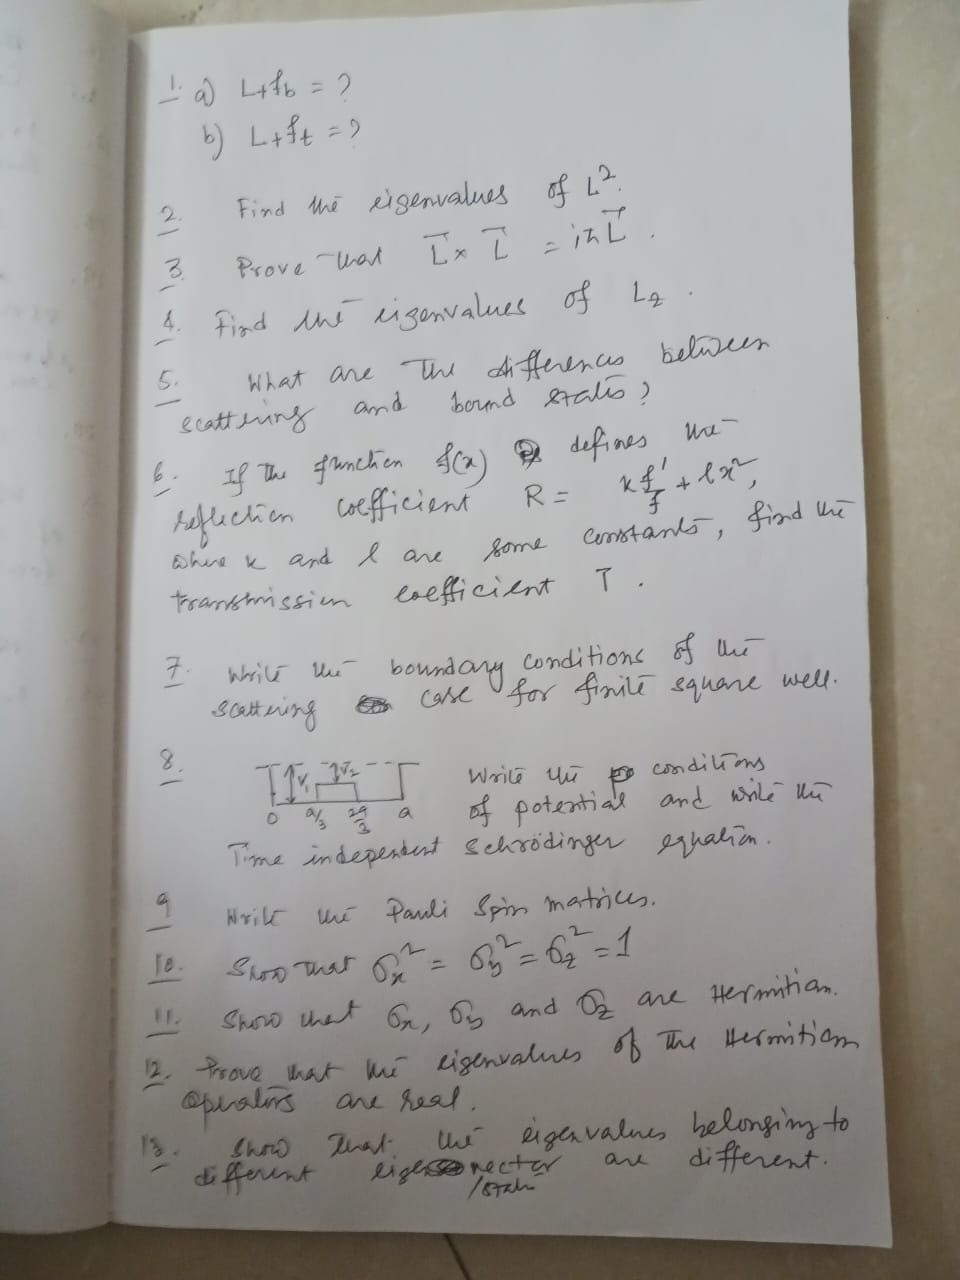 1. a) L+fb = ?
b) L+ft = ?
2. Find the eigenvalues of L².
3. Prove that L⃗ × L⃗ = iħL⃗.
4. Find the eigenvalues of Lz.
5. What are the differences between
scattering and bound states?
6. If the function f(x) defines the
reflection coefficient R = k f'/f + lx²,
where k and l are some constants, find the
transmission coefficient T.
7. Write the boundary conditions of the
scattering case for finite square well.
8. V1 V2 Write the conditions
0 a/3 2a/3 a of potential and write the
Time independent Schrödinger equation.
9 Write the Pauli Spin matrices.
10. Show that σx² = σy² = σz² = 1
11. Show that σx, σy and σz are Hermitian.
12. Prove that the eigenvalues of the Hermitian
operators are real.
13. Show that the eigenvalues belonging to
different eigenvector are different.
/state